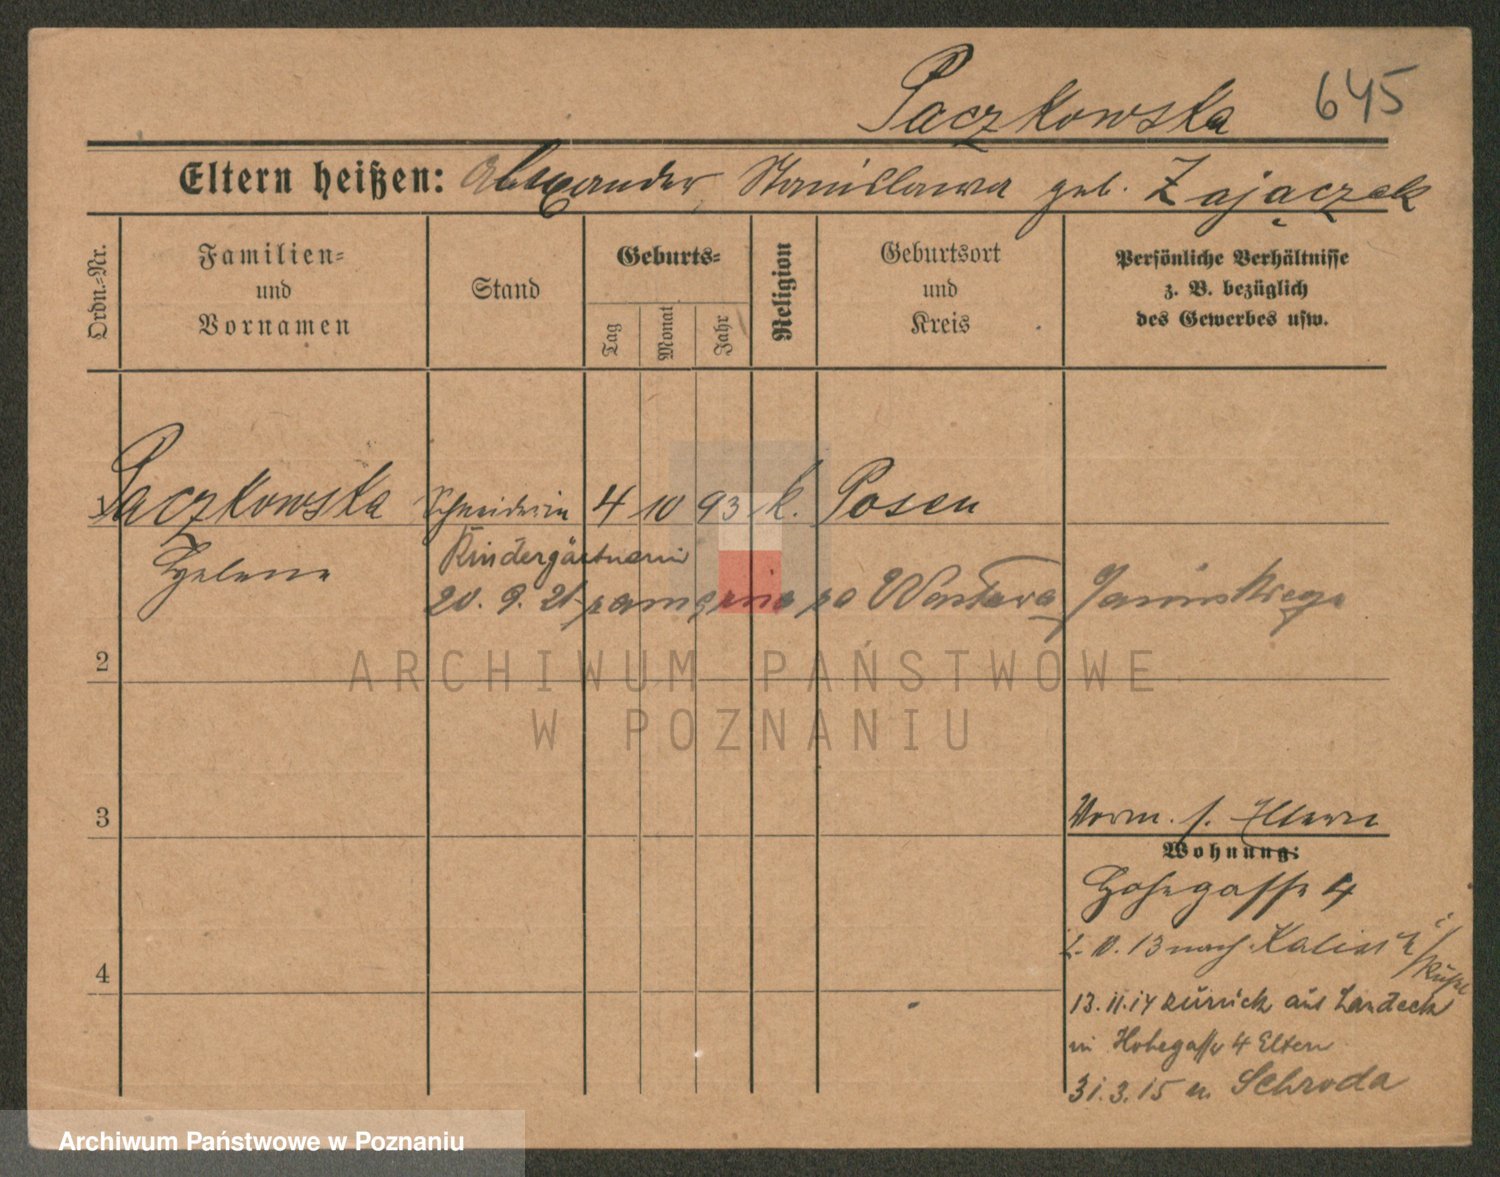 Paczkowska 645
Eltern heißen: Alexander, Stanislawa geb. Zajączek
Ordn.-Nr.
Familien-
und
Vornamen
Stand
Geburts-
Tag
Monat
Jahr
Religion
Geburtsort
und
Kreis
Persönliche Verhältnisse
z. B. bezüglich
des Gewerbes usw.
Paczkowska Schneiderin 4 10 93 k. Posen
Helene Kindergärtnerin
20. 9. 21 za Wacława Jasińskiego
2
ARCHIWUM PAŃSTWOWE
W POZNANIU
3
Vorm. s. Eltern
Wohnung:
Hohegasse 4
10. 13 nach Kalisz i/
Rußl
4
13.11.14 zurück aus Landeck
in Hohegasse 4 Eltern
31.3.15 n. Schroda
Archiwum Państwowe w Poznaniu